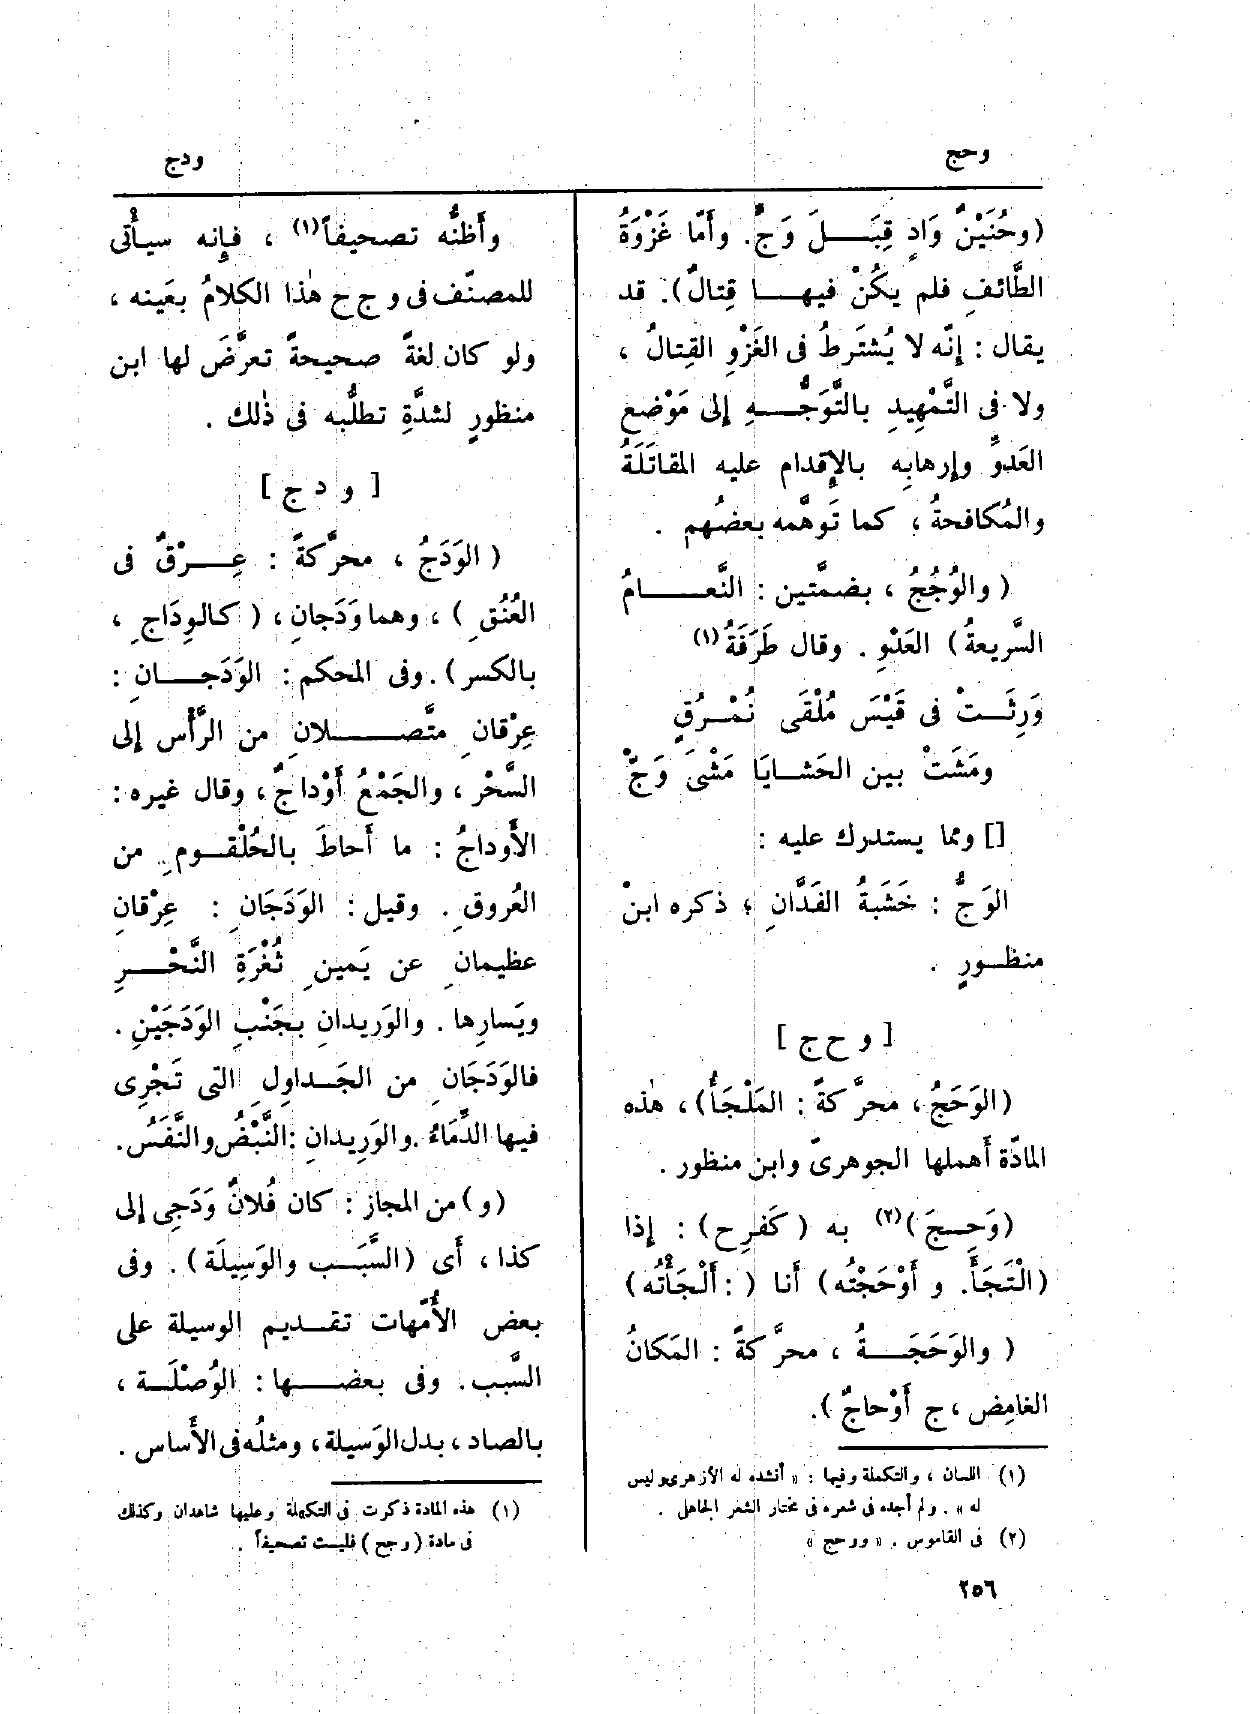 وحج
(وحُنَيْنٌ وَادٍ قِبَـــلَ وَجٍّ. وأَمّا غَزْوَةُ
الطَّائفِ فلم يكُنْ فيهــا قِتالٌ). قد
يقال : إِنّه لا يُشتَرطُ فى الغَزْوِ القِتالُ ،
ولا فى التَّمْهِيدِ بالتَّوَجُّــهِ إِلى مَوْضعِ
العَدوِّ وإِرهابِه بالإِقدام عليه المقاتَلَةُ
والمُكافحةُ ، كما تَوهَّمه بعضُهم .
( والوُجُجُ ، بضمّتين : النَّعــــامُ
السَّريعةُ) العَدْوِ . وقال طَرَفَةُ(١)
وَرِثَــتْ فى قَيْسَ مُلْقَى نُمْــرُقٍ
ومَشَتْ بين الحَشـايَا مَشْىَ وَجّْ
[] ومما يستدرك عليه :
الوَجُّ : خَشَبَةُ الفَدَّانِ ، ذكره ابنْ
منظــورٍ .
[ و ح ج ]
(الوَحَجُ ، محرَّكةً : المَلْجَأُ) ، هٰذه
المادّة أَهملها الجوهرىّ وابن منظور .
(وَحِــجَ)(٢) به ( كَفرِح ) : إِذا
(الْتَجَأَ. و أَوْحَجْتُه) أَنا ( : أَلْجَأْتُه)
( والوَحَجَــةُ ، محرَّكةً : المَكانُ
الغامِض ، ج أَوْحاجٌ ).
(١) اللسان ، والتكملة وفيها : « أنشده له الأزهرى وليس
له » . ولم أجده فى شعره فى مختار الشعر الجاهلى .
(٢) فى القاموس . « ووحج »
٢٥٦
ودج
وأَظنُّه تصحيفاً(١) ، فإِنه سيأْتى
للمصنّف فى و ج ح هٰذا الكلامُ بعَينه ،
ولو كان لغةً صحيحةً تعرَّضَ لها ابن
منظورٍ لشدَّةِ تطلُّبه فى ذٰلك .
[ و د ج ]
( الوَدَجُ ، محرَّكةً : عِــرْقٌ فى
العُنُقِ ) ، وهما وَدَجانِ ، ( كالوِدَاجِ ،
بالكسر ) . وفى المحكم : الوَدَجــانِ :
عِرْقانِ متَّصـــلانِ من الرَّأْس إِلى
السَّحْر ، والجَمْعُ أَوْداجٌ ، وقال غيره :
الأَوداجُ : ما أَحاطَ بالحُلْقــومِ من
العُروقِ . وقيل : الوَدَجَانِ : عِرْقانِ
عظيمانِ عن يَمينِ ثُغْرَةِ النَّحْــرِ
ويَسارِها . والوَرِيدانِ بجَنْبِ الوَدَجَيْنِ .
فالوَدَجَانِ من الجَـداوِلِ التى تَجْرِى
فيها الدِّمَاءُ .والوَرِيدانِ :النَّبْضُ والنَّفَسُ.
( و ) من المجاز : كان فُلانٌ وَدَجِى إِلى
كذا ، أَى ( السَّبَــب والوَسِيلَة ) . وفى
بعض الأُمَّهات تقــديم الوسيلة على
السَّبب. وفى بعضــها : الوُصْلَــة ،
بالصاد ، بدل الوَسيلة ، ومثلُه فى الأَساس .
(١) هذه المادة ذكرت فى التكملة وعليها شاهدان وكذلك
فى مادة ( وجح ) فليست تصحيفاً .